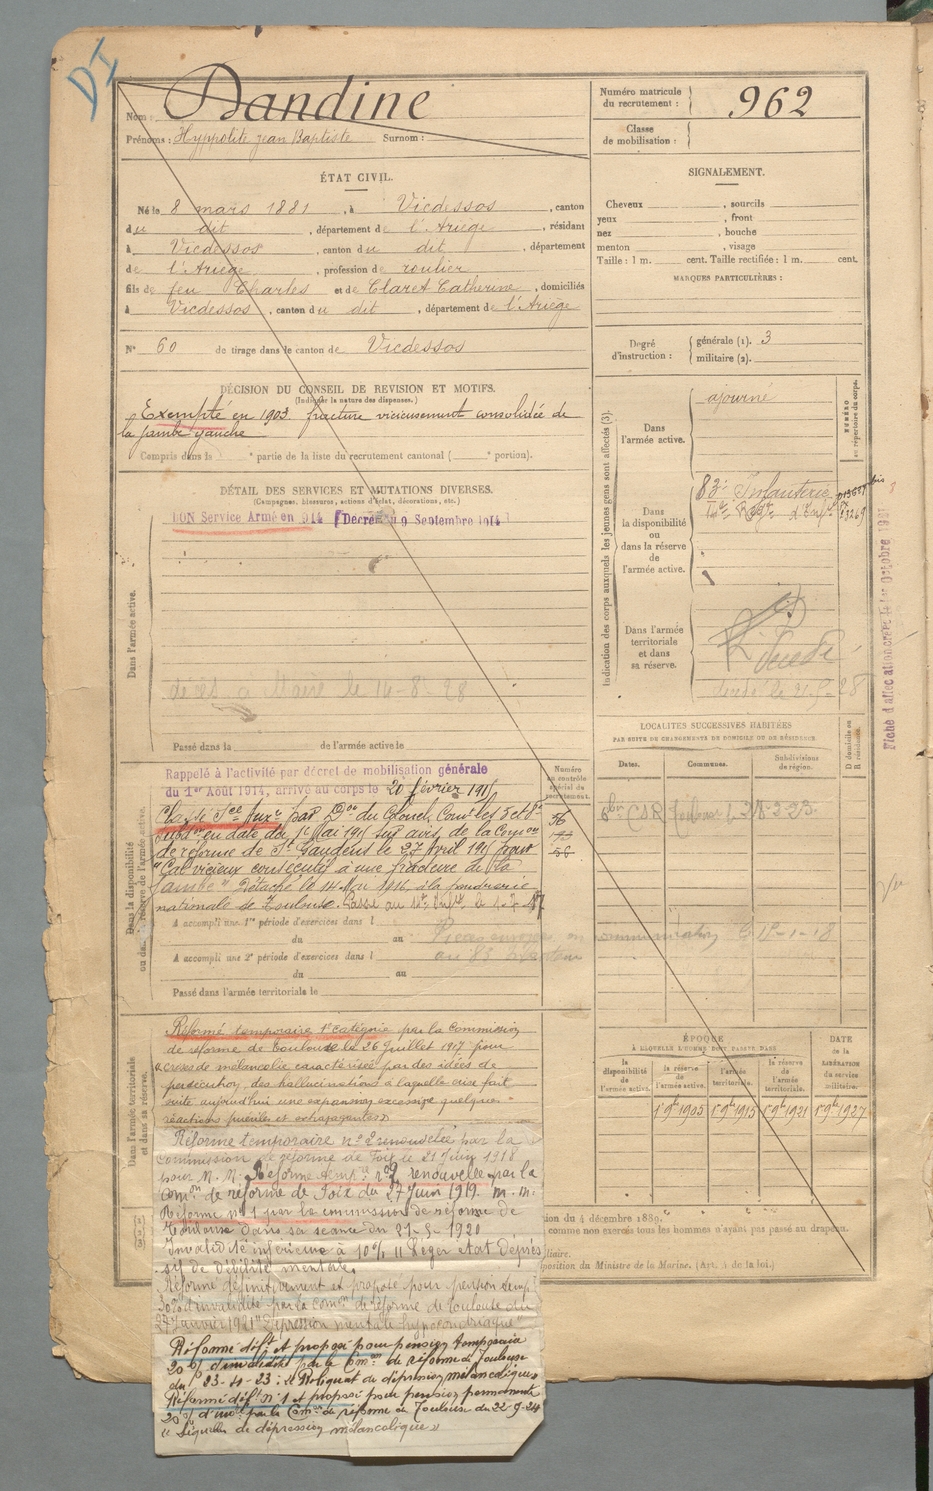 DI
Nom : Dandine
Prénoms : Hyppolite jean Baptiste Surnom :
Numéro matricule du recrutement : 962
Classe de mobilisation :
ÉTAT CIVIL.
Né le 8 mars 1881, à Vicdessos, canton
du dit, département de l'Ariège, résidant
à Vicdessos, canton du dit, département
de l'Ariège, profession de roulier
fils de feu Charles et de Claret Catherine, domiciliés
à Vicdessos, canton du dit, département de l'Ariège
N° 60 de tirage dans le canton de Vicdessos
SIGNALEMENT.
Cheveux , sourcils
yeux , front
nez , bouche
menton , visage
Taille : 1 m. cent. Taille rectifiée : 1 m. cent.
MARQUES PARTICULIÈRES :
Degré d'instruction : générale (1). 3
militaire (2).
DÉCISION DU CONSEIL DE REVISION ET MOTIFS.
(Indiquer la nature des dispenses.)
Exempté en 1903 fracture vicieusement consolidée de
la jambe gauche
Compris dans la e partie de la liste du recrutement cantonal ( e portion).
DÉTAIL DES SERVICES ET MUTATIONS DIVERSES.
(Campagnes, blessures, actions d'éclat, décorations, etc.)
BON Service Armé en 914 (Décret du 9 Septembre 1914)
Dans l'armée active.
décès à Maire le 14-8-28
Passé dans la de l'armée active le
Indication des corps auxquels les jeunes gens sont affectés (3).
NUMÉRO au répertoire du corps.
Dans l'armée active.
ajourné
Dans la disponibilité ou dans la réserve de l'armée active.
83e Infanterie
Dans l'armée territoriale et dans sa réserve.
Fiche d'affectation créée le 1er Octobre 1921
LOCALITÉS SUCCESSIVES HABITÉES
PAR SUITE DE CHANGEMENTS DE DOMICILE OU DE RÉSIDENCE.
Dates. Communes. Subdivisions de région.
D domicile ou R résidence.
Dans la disponibilité ou dans la réserve de l'armée active.
Numéro au contrôle spécial du recrutement.
Rappelé à l'activité par décret de mobilisation générale
du 1er Août 1914, arrivé au corps le 20 février 1915
Classé Sce Auxre par Don du Colonel Comt les 5e et 6e
Subdons en date du 1er Mai 191 sur avis de la Comon
de réforme de St Gaudens le 27 avril 191 pour
"Cal vicieux consécutif à une fracture de la
jambe" Détaché le 14 Nov 1916 à la poudrerie
nationale de Toulouse.
56
56
A accompli une 1re période d'exercices dans l
du au
A accompli une 2e période d'exercices dans l
du au
Passé dans l'armée territoriale le
Dans l'armée territoriale et dans sa réserve.
Réformé temporaire 1e catégorie par la Commission
de réforme de Toulouse le 26 Juillet 1917 pour
« crises de mélancolie caractérisée par des idées de
persécution, des hallucinations à laquelle crise fait
suite aujourd'hui une expansion excessive quelques
réactions pueriles et extravagantes »
Réforme temporaire n° 2 renouvelée par la
commission de réforme de Foix le 21 Juin 1918
pour M. M. Réforme temp. n° 2 renouvelée par la
Comon de réforme de Foix du 27 Juin 1919. m. m.
Réforme n° 1 par la commission de réforme de
Toulouse dans sa séance du 21-5-1920
Invalidité inférieure à 10% "Léger état dépres
sif de débilité mentale.
Réformé définitivement et proposé pour pension temp.
30% d'invalidité par la comon de réforme de Toulouse du
27 Janvier 1921 "Dépression mentale hypocondriaque"
Réformé déft. et proposé pour pension temporaire
20% d'invalidité par la Comon de réforme de Toulouse
du 23-4-23 : « Reliquat de dépression mélancolique »
Réformé déft n° 1 et proposé pour pension permanente
20% d'inv. par la Comon de réforme de Toulouse du 22-9-24
« Séquelles de dépression mélancolique »
ÉPOQUE
À LAQUELLE L'HOMME DOIT PASSER DANS
la disponibilité de l'armée active.
la réserve de l'armée active.
l'armée territoriale.
la réserve de l'armée territoriale.
DATE de la LIBÉRATION du service militaire.
1er 9bre 1905 1er 9bre 1915 1er 9bre 1921 1er 9bre 1927
ion du 4 décembre 1889.
comme non exercés tous les hommes n'ayant pas passé au drapeau.
iliaire.
position du Ministre de la Marine. (Art. 4 de la loi.)